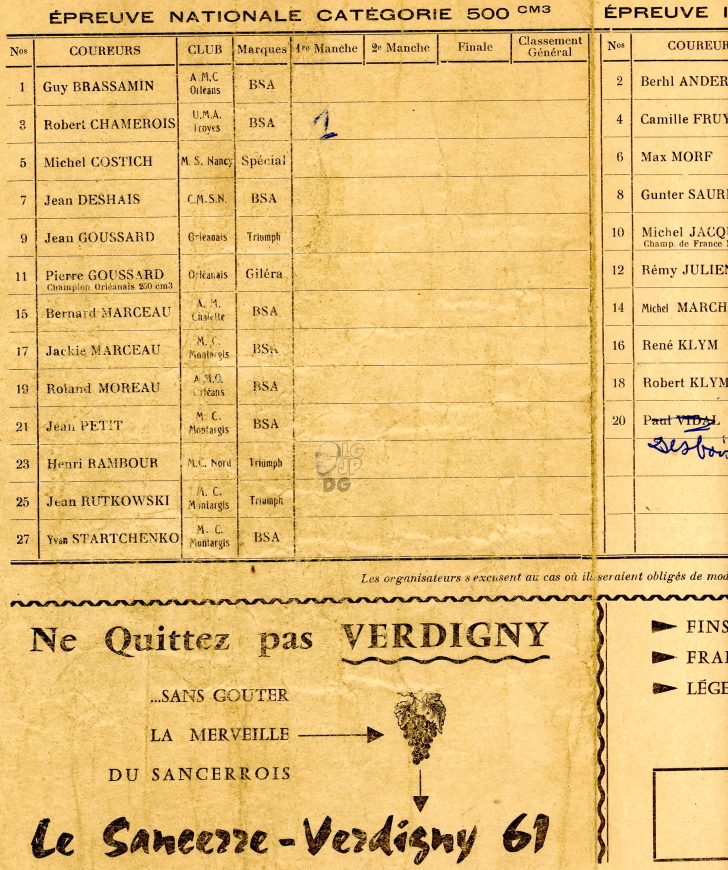 ÉPREUVE NATIONALE CATÉGORIE 500 CM3
Nos COUREURS CLUB Marques 1re Manche 2e Manche Finale Classement Général
1 Guy BRASSAMIN A.M.C Orléans BSA
3 Robert CHAMEROIS U.M.A. Troyes BSA 1
5 Michel COSTICH M. S. Nancy Spécial
7 Jean DESHAIS C.M.S.N. BSA
9 Jean GOUSSARD Orléanais Triumph
11 Pierre GOUSSARD Orléanais Giléra
Champion Orléanais 250 cm3
15 Bernard MARCEAU A. M. Chalette BSA
17 Jackie MARCEAU M. C. Montargis BSA
19 Roland MOREAU A.M.O. Orléans BSA
21 Jean PETIT M. C. Montargis BSA
23 Henri RAMBOUR M.C. Nord Triumph
25 Jean RUTKOWSKI M. C. Montargis Triumph
27 Yvan STARTCHENKO M. C. Montargis BSA
ÉPREUVE I
Nos COUREUR
2 Berhl ANDER
4 Camille FRUY
6 Max MORF
8 Gunter SAUR
10 Michel JACQU
Champ. de France
12 Rémy JULIEN
14 Michel MARCH
16 René KLYM
18 Robert KLYM
20 Paul VIDAL
Desboi
LG
JP
DG
Les organisateurs s'excusent au cas où ils seraient obligés de mod
Ne Quittez pas VERDIGNY
...SANS GOUTER
LA MERVEILLE
DU SANCERROIS
Le Sancerre-Verdigny 61
FINS
FRAI
LÉGE